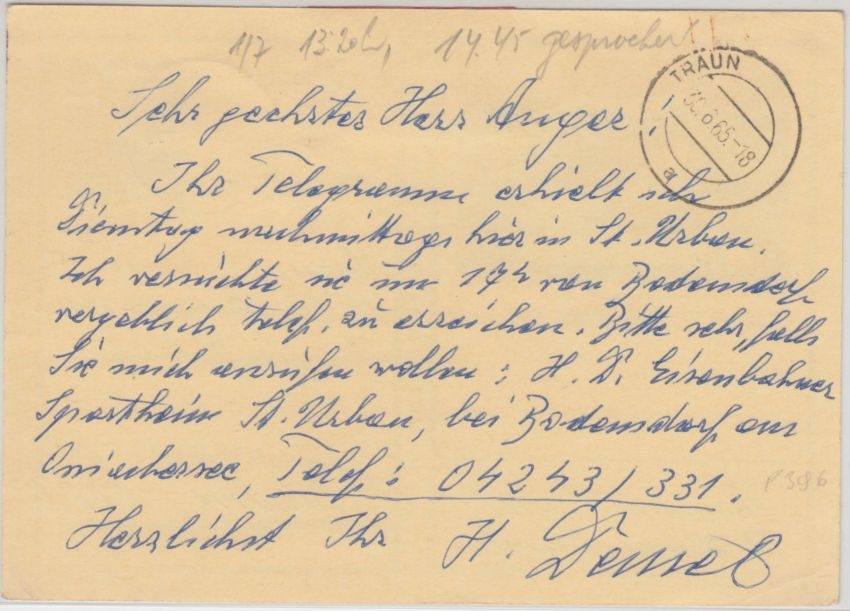 1/7 13.20h, 14.45 gesprochen
TRAUN
30.6.65.-18
a
Sehr geehrter Herr Anger!
Ihr Telegramm erhielt ich
Dienstag nachmittags hier in St. Urban.
Ich versuchte sie um 17h von Bodensdorf
vergeblich telef. zu erreichen. Bitte sehr, falls
Sie mich anrufen wollen: H. D. Eisenbahner
Sportheim St. Urban, bei Bodensdorf am
Ossiachersee, Telef: 04243/331.
P 396
Herzlichst Ihr H.